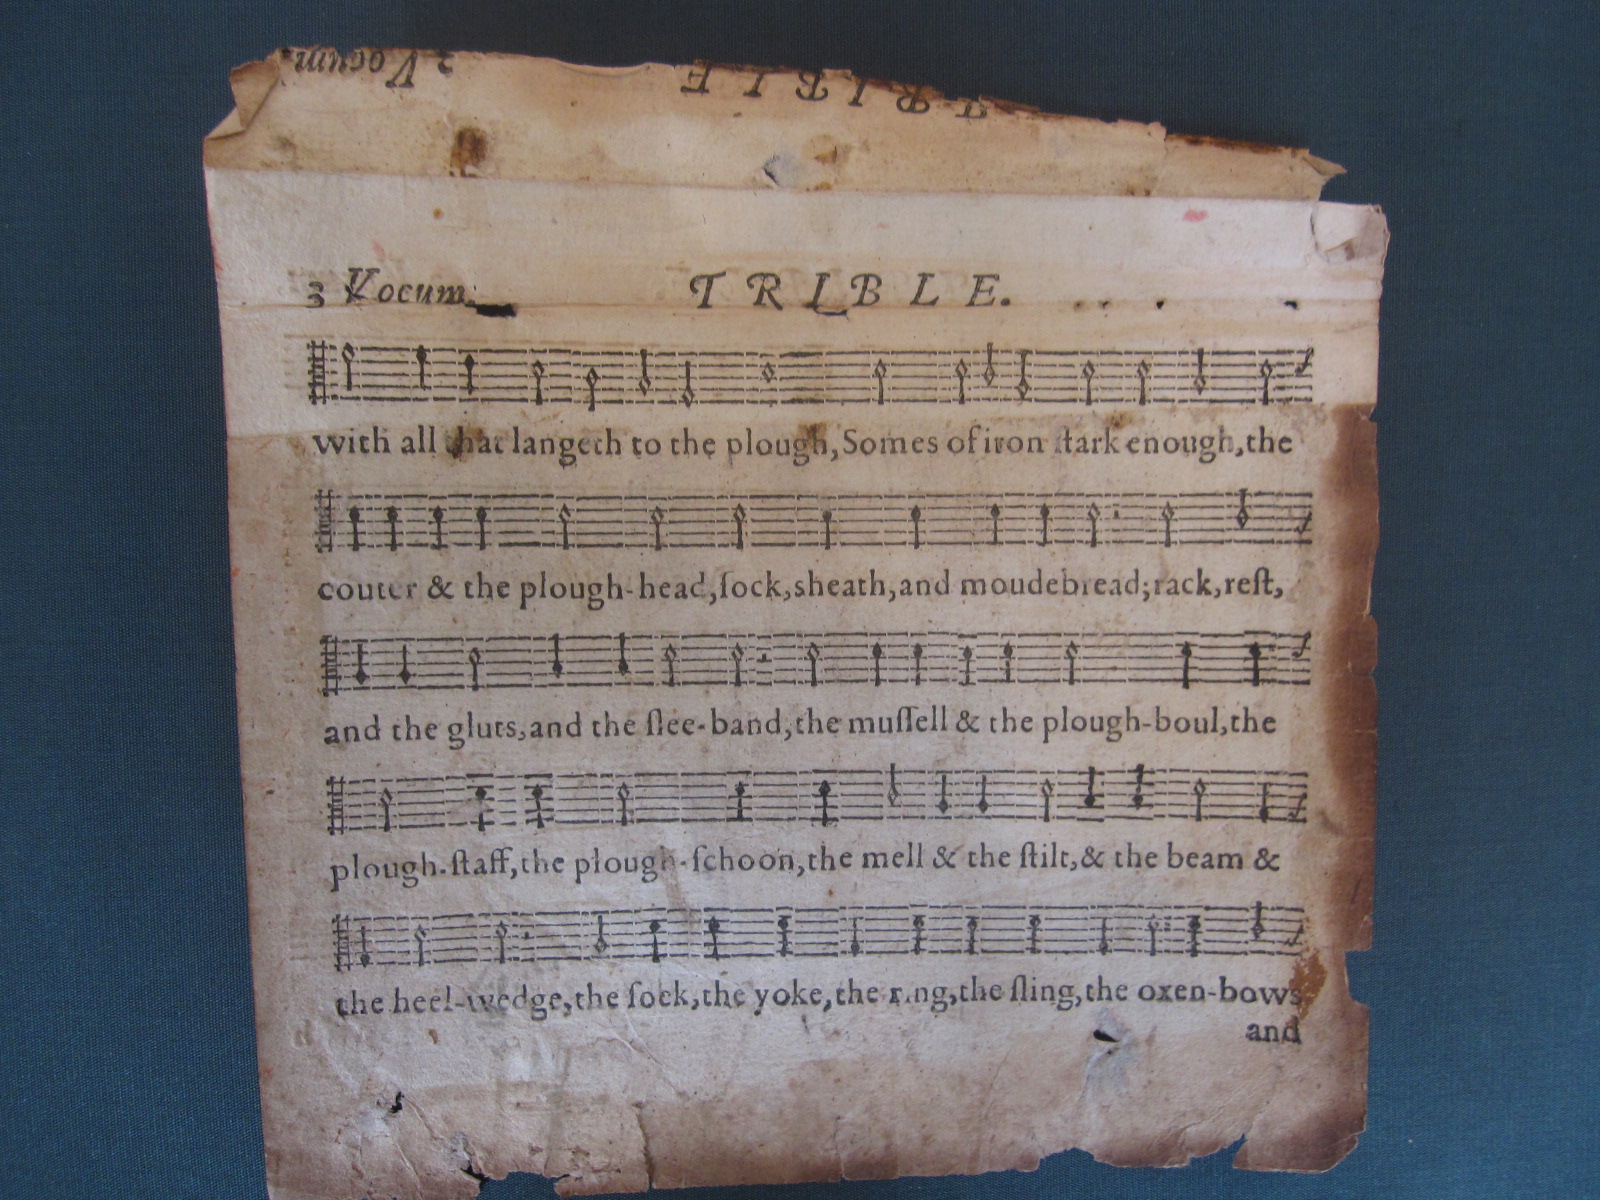 3 Vocum. TRIBLE
3 Vocum. TRIBLE.
with all that langeth to the plough, Somes of iron ſtark enough, the
couter & the plough-head, ſock, sheath, and moudebread; rack, reſt,
and the gluts, and the ſlee-band, the muſſell & the plough-boul, the
plough-ſtaff, the plough-ſchoon, the mell & the ſtilt, & the beam &
the heel-wedge, the ſock, the yoke, the ring, the ſling, the oxen-bows
and